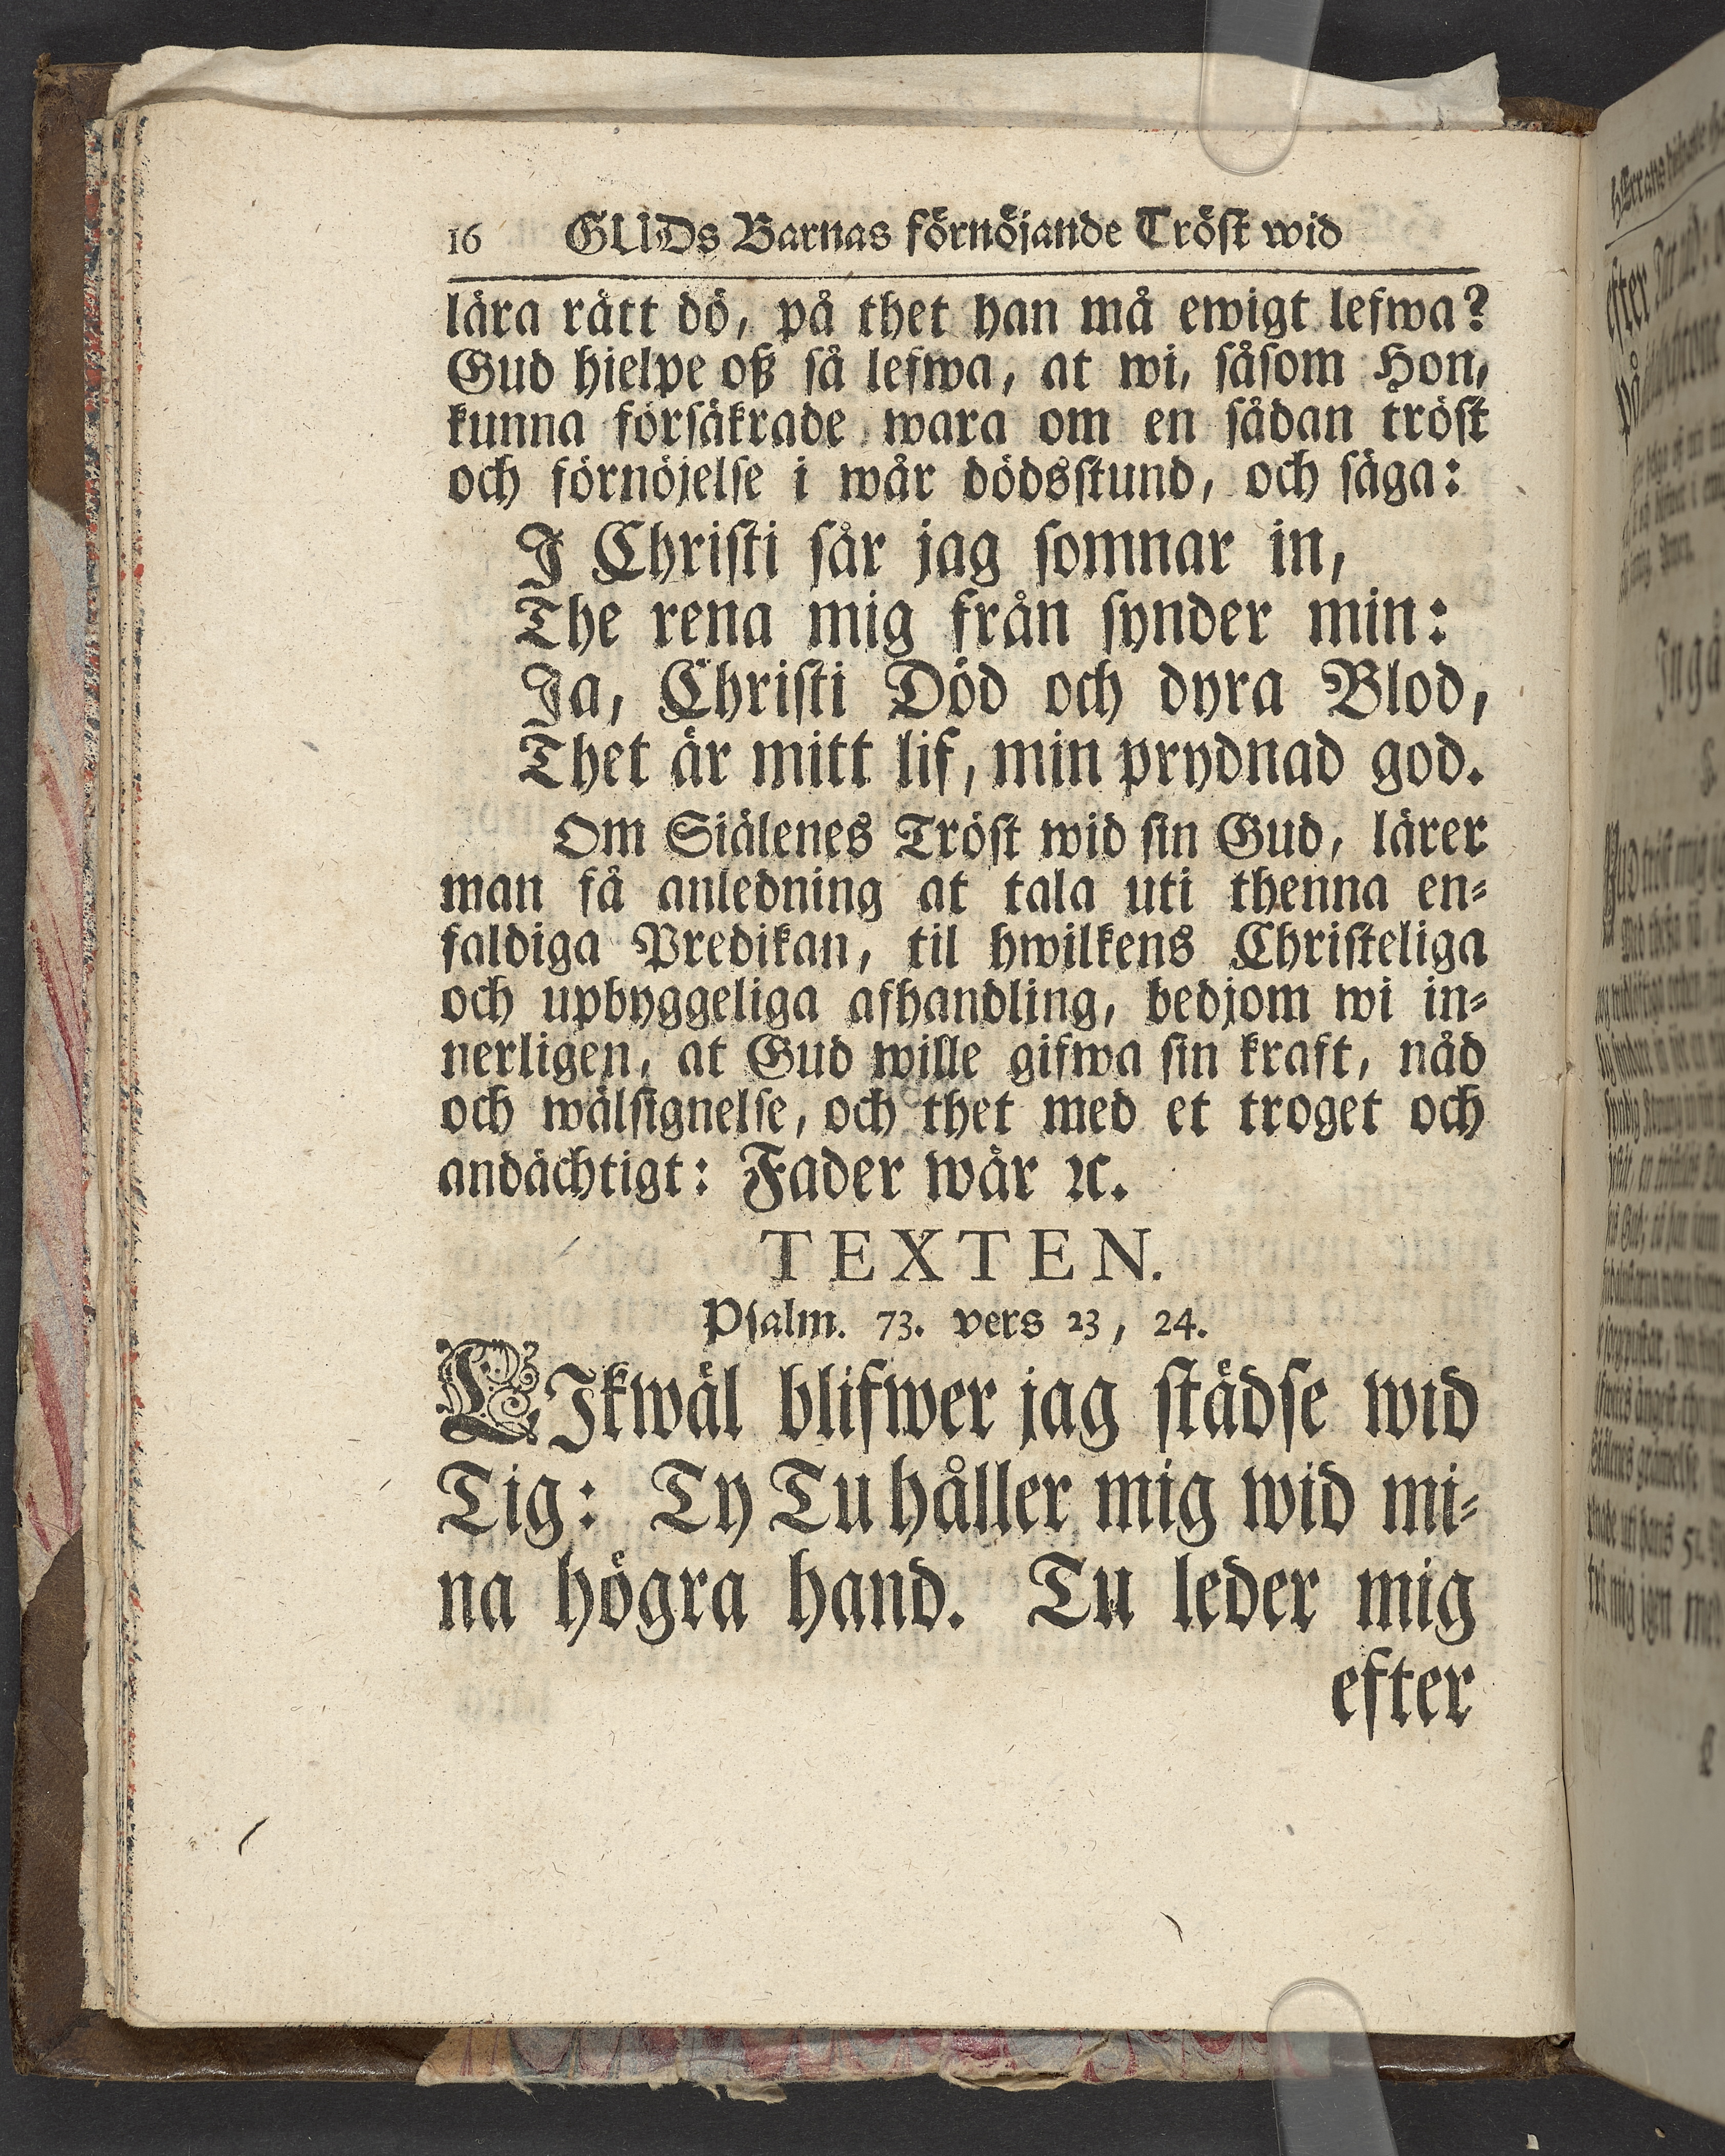 16 GUDs Barnas förnöjande Tröst wid
lära rätt dö, på thet han må ewigt lefwa?
Gud hielpe oß så lefwa, at wi, såsom Hon,
kunna försäkrade wara om en sådan tröst
och förnöjelse i wår dödsstund, och säga:
I Christi sår jag somnar in,
The rena mig från synder min:
Ja, Christi Död och dyra Blod,
Thet är mitt lif, min prydnad god.
Om Siälenes Tröst wid sin Gud, lärer
man få anledning at tala uti thenna en-
faldiga Predikan, til hwilkens Christeliga
och upbyggeliga afhandling, bedjom wi in-
nerligen, at Gud wille gifwa sin kraft, nåd
och wälsignelse, och thet med et troget och
andächtigt: Fader wår ꝛc.
TEXTEN.
Psalm. 73. vers 23, 24.
LIkwäl blifwer jag städse wid
Tig: Ty Tu håller mig wid mi-
na högra hand. Tu leder mig
efter
efter
På
Ingå